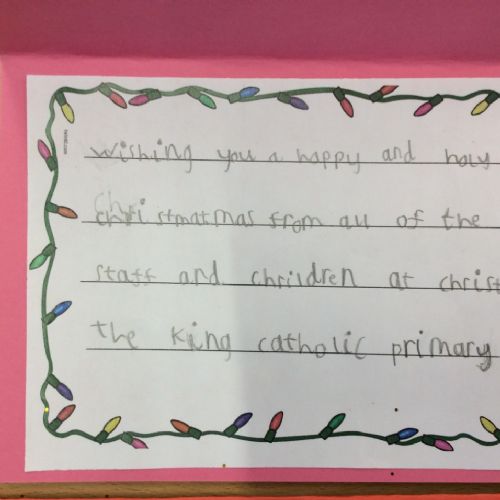 wishing you a happy and holy
christmatmas from all of the
staff and chrildren at christ
the King catholic primary